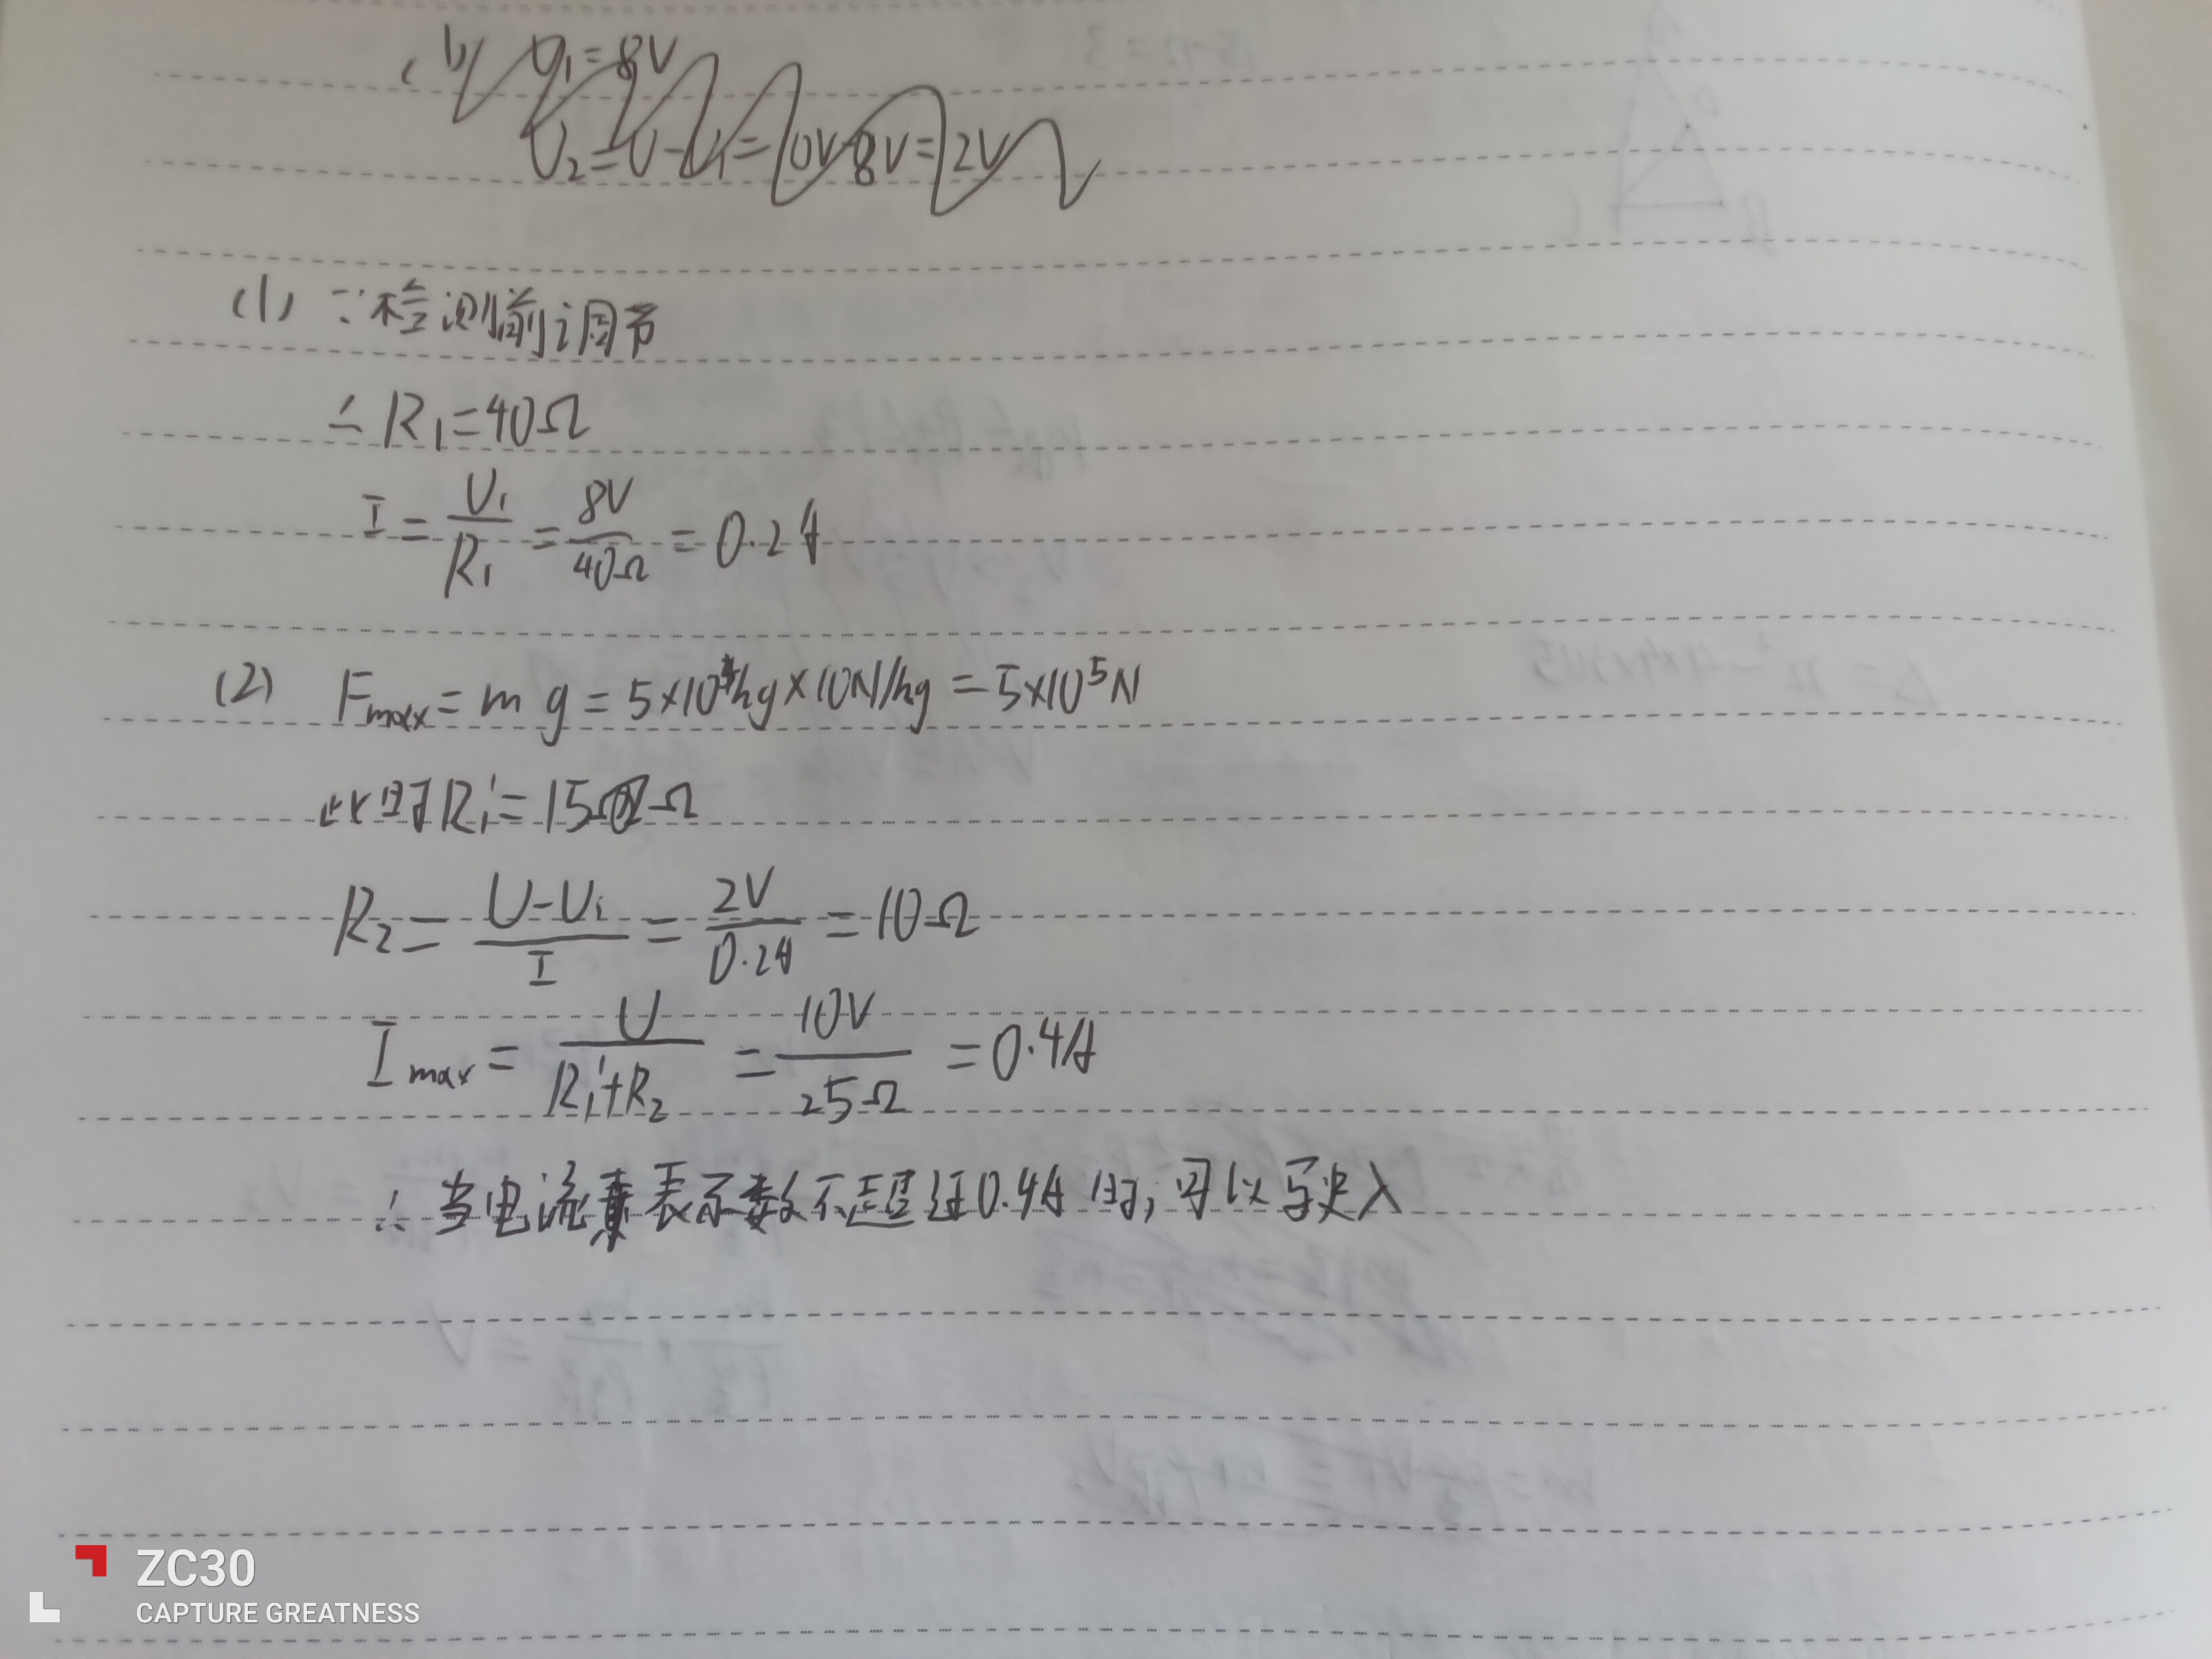 (1) U₁=8V
U₂=U-U₁=10V-8V=2V
(1) ∵检测前调节
∴R₁=40Ω
I=U₁/R₁=8V/40Ω=0.2A
(2) Fmax=mg=5×10⁴kg×10N/kg=5×10⁵N
此时R₁'=15Ω
R₂=(U-U₁)/I=2V/0.2A=10Ω
Imax=U/(R₁'+R₂)=10V/25Ω=0.4A
∴当电流表示数不超过0.4A时,可以驶入
ZC30
CAPTURE GREATNESS